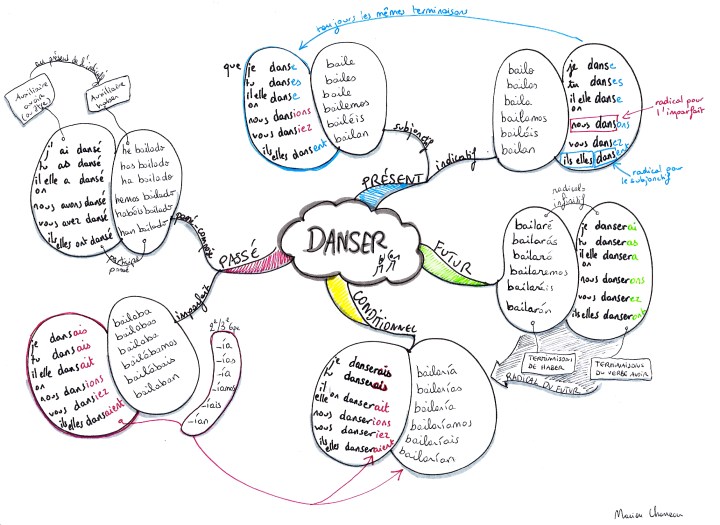 toujours les mêmes terminaisons
que je danse
tu danses
il elle danse
on
nous dansions
vous dansiez
ils elles dansent
baile
bailes
baile
bailemos
bailéis
bailen
subjonctif
bailo
bailas
baila
bailamos
bailáis
bailan
indicatif
je danse
tu danses
il elle danse
on
nous dansons
vous dansez
ils elles dansent
radical pour
l'imparfait
radical pour
le subjonctif
PRÉSENT
au présent de l'indicatif
Auxiliaire
avoir
(ou être)
Auxiliaire
haber
j' ai dansé
tu as dansé
il elle a dansé
on
nous avons dansé
vous avez dansé
ils elles ont dansé
he bailado
has bailado
ha bailado
hemos bailado
habéis bailado
han bailado
participe
passé
passé-composé
PASSÉ
DANSER
FUTUR
radicals
infinitif
bailaré
bailarás
bailará
bailaremos
bailaréis
bailarán
je danserai
tu danseras
il elle dansera
on
nous danserons
vous danserez
ils elles danseront
TERMINAISON
DE HABER
TERMINAISONS
DU VERBE AVOIR
RADICAL DU FUTUR
imparfait
je dansais
tu dansais
il elle dansait
on
nous dansions
vous dansiez
ils elles dansaient
bailaba
bailabas
bailaba
bailábamos
bailabais
bailaban
2e/3e gpe
-ía
-ías
-ía
-íamos
-íais
-ían
CONDITIONNEL
je danserais
tu danserais
il
elle danserait
on
nous danserions
vous danseriez
ils
elles danseraient
bailaría
bailarías
bailaría
bailaríamos
bailaríais
bailarían